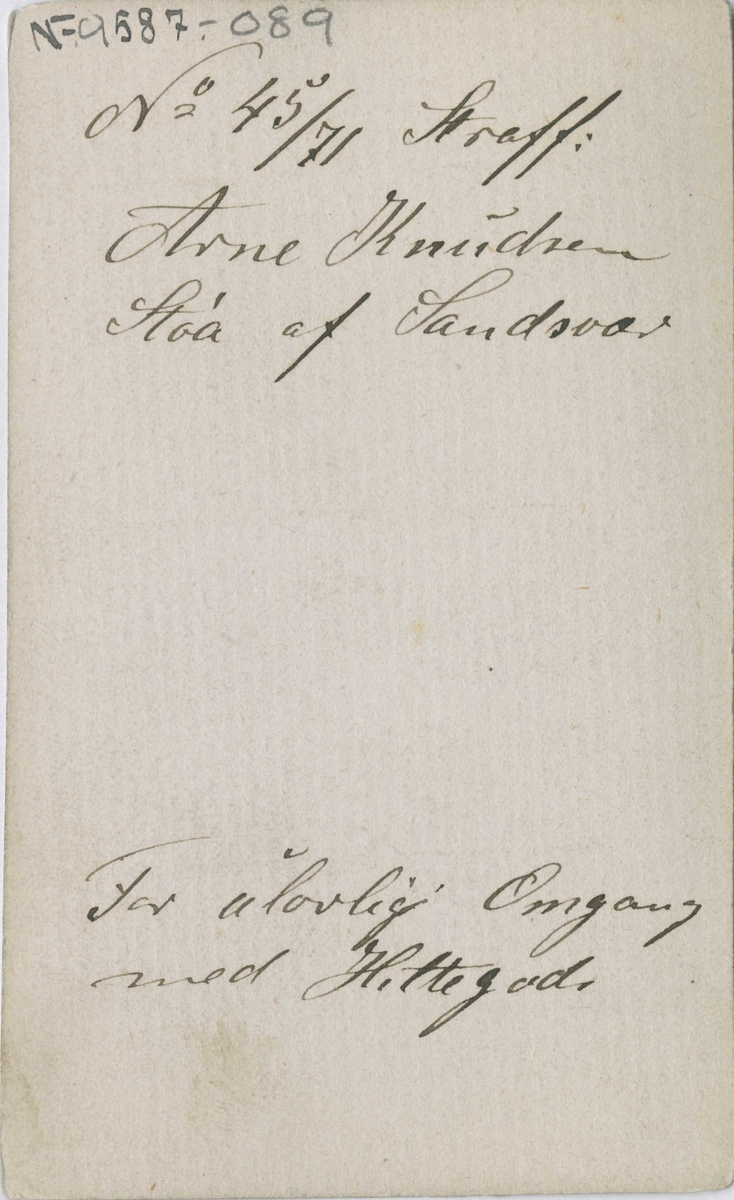 N-9587-089
No 45/71 Straff:
Arne Knudsen
Stóa af Sandsvær
For ulovlig Omgang
med Hittegods